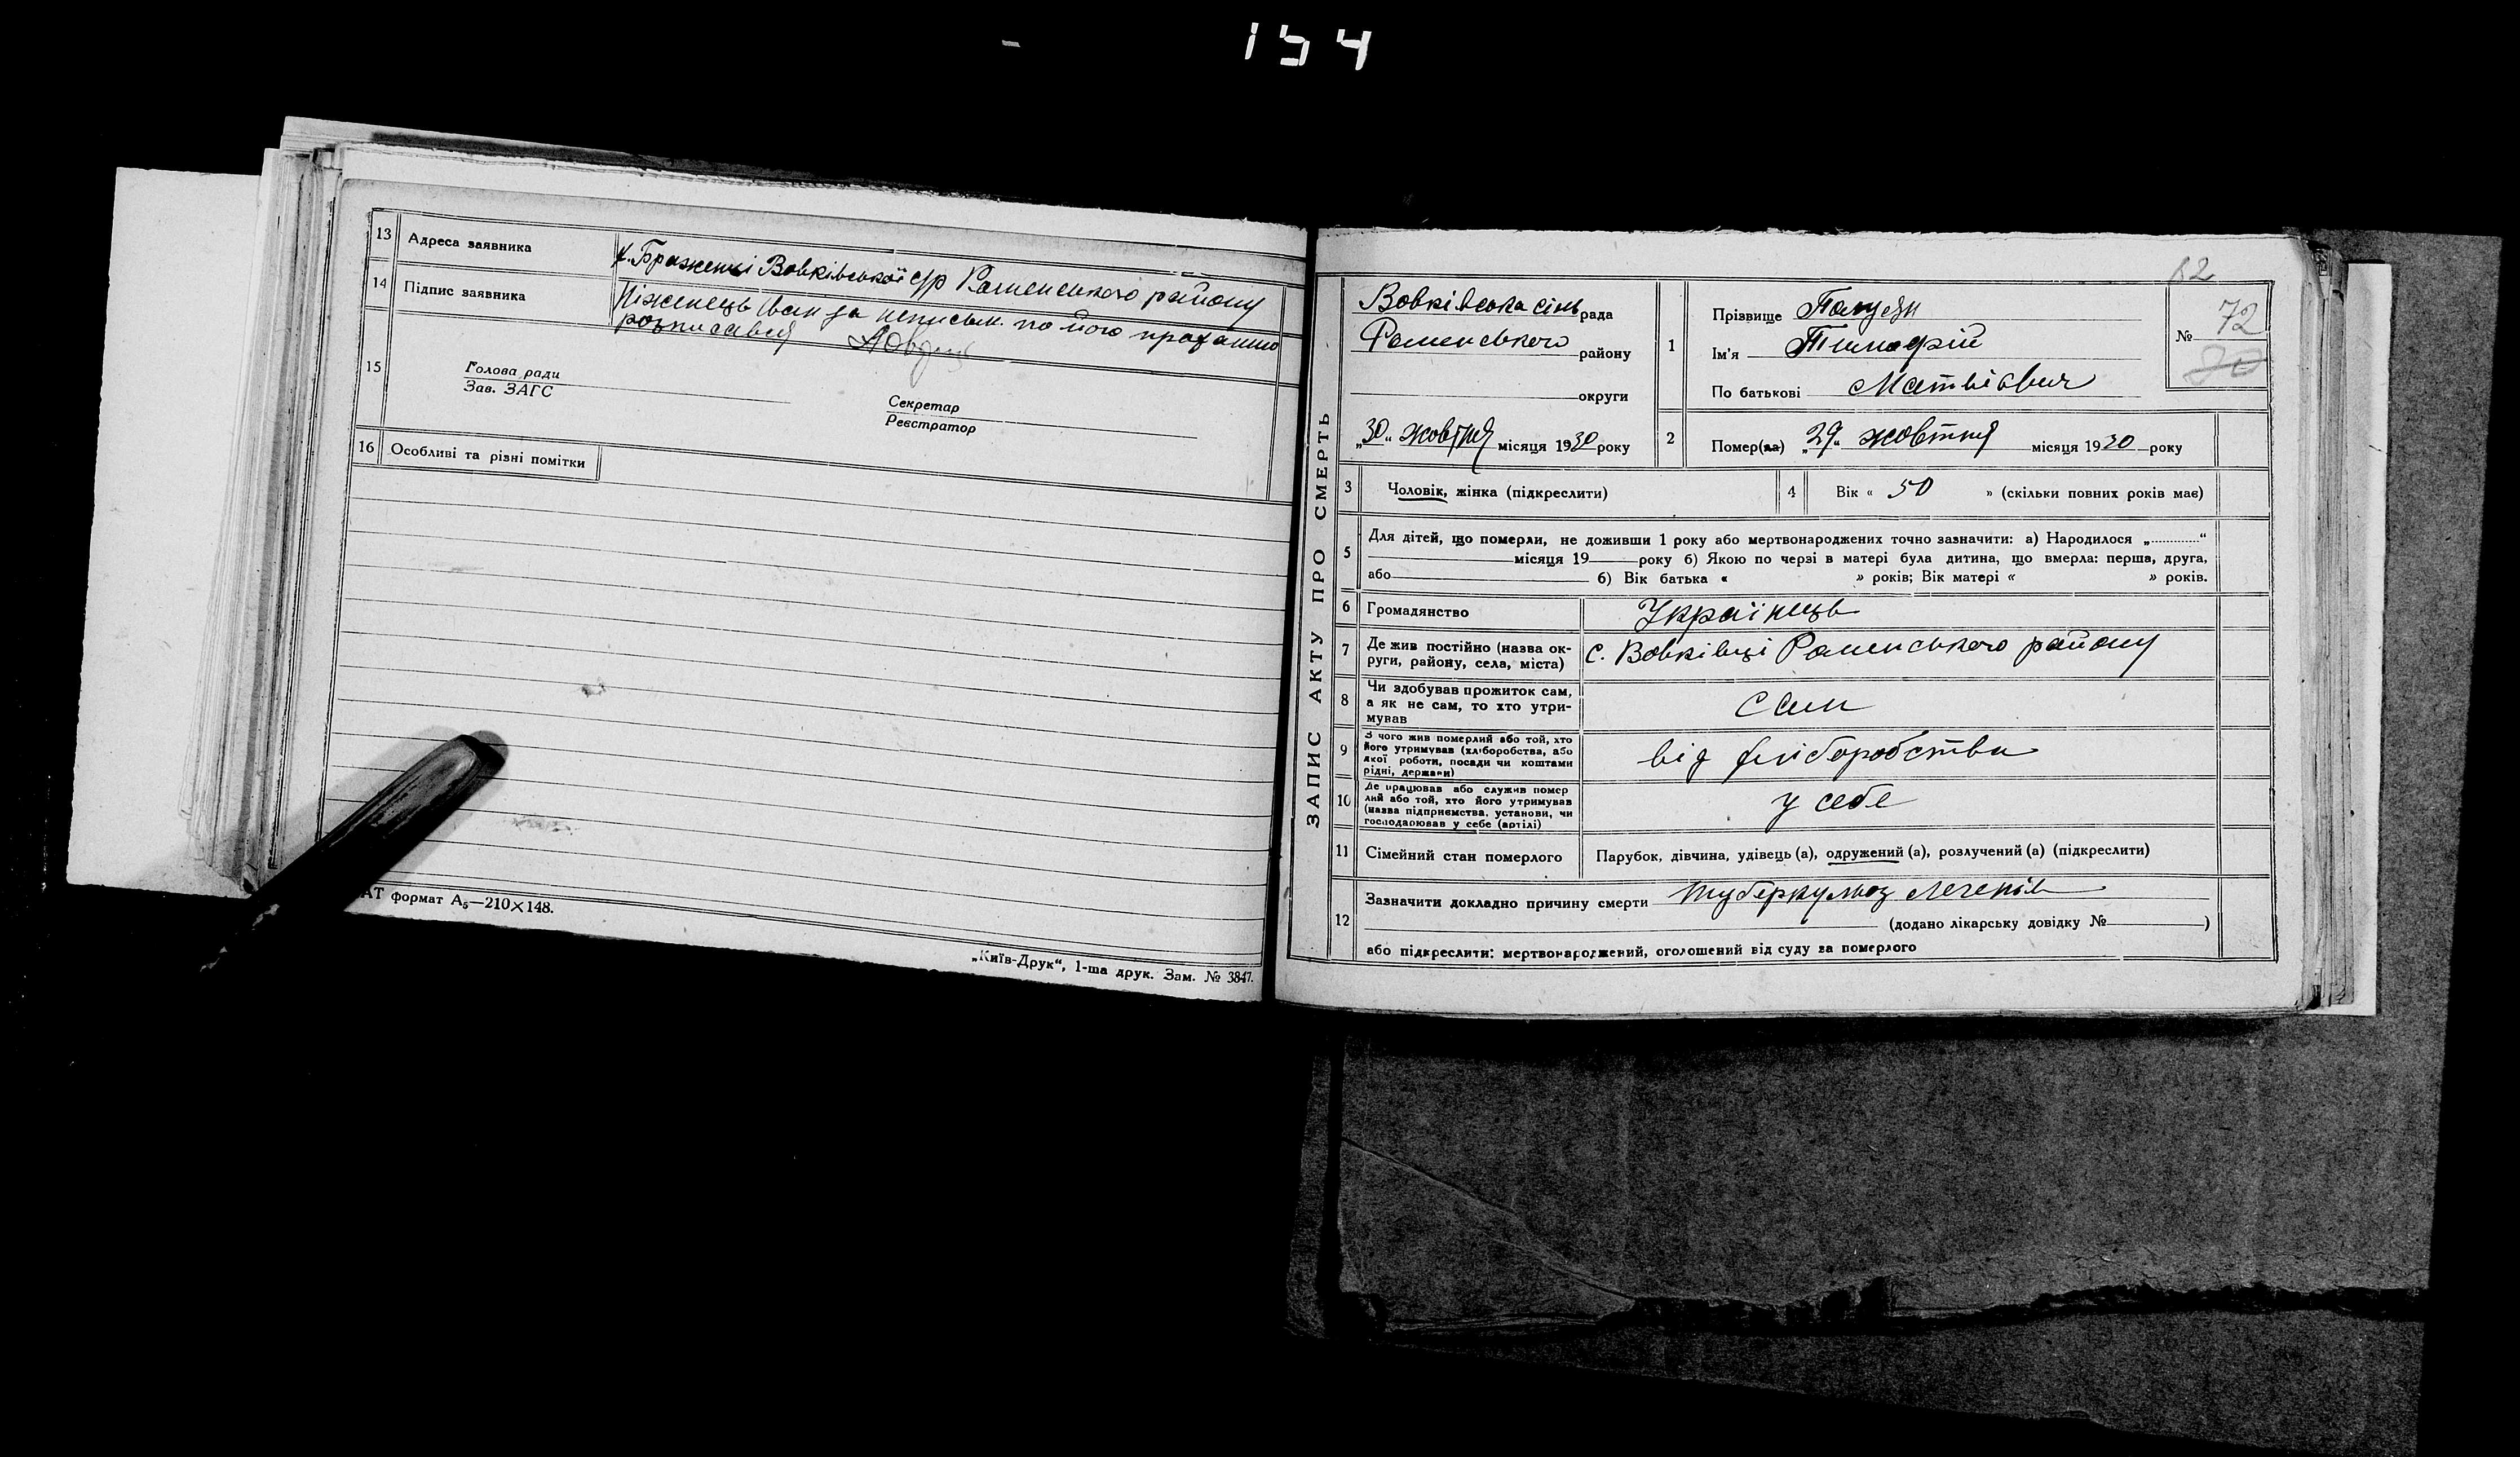 134
13 Адреса заявника
х. Браженці Вовківської с/р Роменського району
14 Підпис заявника
Ніженець Іван за неписьм. по його проханню
розписався
15
Голова ради
Зав. ЗАГС
Секретар
Реєстратор
16 Особливі та різні помітки
АТ формат А₅—210×148.
„Київ-Друк“, 1-ша друк. Зам. № 3847.
82
ЗАПИС АКТУ ПРО СМЕРТЬ
Вовківська сіль рада
Роменського району
округи
„30“ жовтня місяця 1930 року
1
Прізвище
Ім'я Тимофій
По батькові Матвієвич
№ 72
20
2 Помер(ла) „29“ жовтня місяця 1930 року
3 Чоловік, жінка (підкреслити)
4 Вік « 50 » (скільки повних років має)
5 Для дітей, що померли, не доживши 1 року або мертвонароджених точно зазначити: а) Народилося „............“
місяця 19 року б) Якою по черзі в матері була дитина, що вмерла: перша, друга,
або б) Вік батька « » років; Вік матері « » років.
6 Громадянство Українець
7 Де жив постійно (назва ок-
руги, району, села, міста) с. Вовківці Роменського району
8 Чи здобував прожиток сам,
а як не сам, то хто утри-
мував сам
9 З чого жив померлий або той, хто
його утримував (хліборобства, або
якої роботи, посади чи коштами
рідні, держави) від хліборобства
10 Де працював або служив помер
лий або той, хто його утримував
(назва підприємства, установи, чи
господарював у себе (артілі) у себе
11 Сімейний стан померлого Парубок, дівчина, удівець (а), одружений (а), розлучений (а) (підкреслити)
12 Зазначити докладно причину смерти туберкульоз легенів
(додано лікарську довідку № )
або підкреслити: мертвонароджений, оголошений від суду за померлого